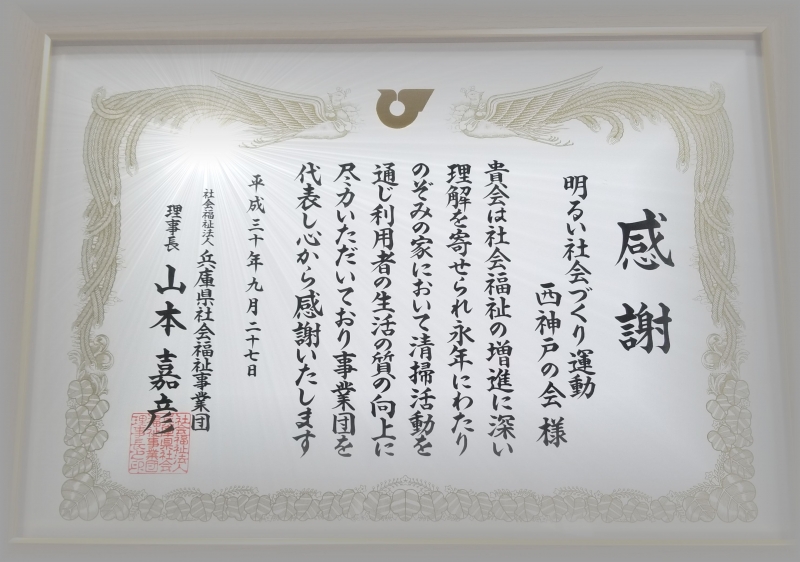 感謝
明るい社会づくり運動
西神戸の会 様
貴会は社会福祉の増進に深い
理解を寄せられ永年にわたり
のぞみの家において清掃活動を
通じ利用者の生活の質の向上に
尽力いただいており事業団を
代表し心から感謝いたします
平成三十年九月二十七日
社会福祉法人 兵庫県社会福祉事業団
理事長 山本嘉彦